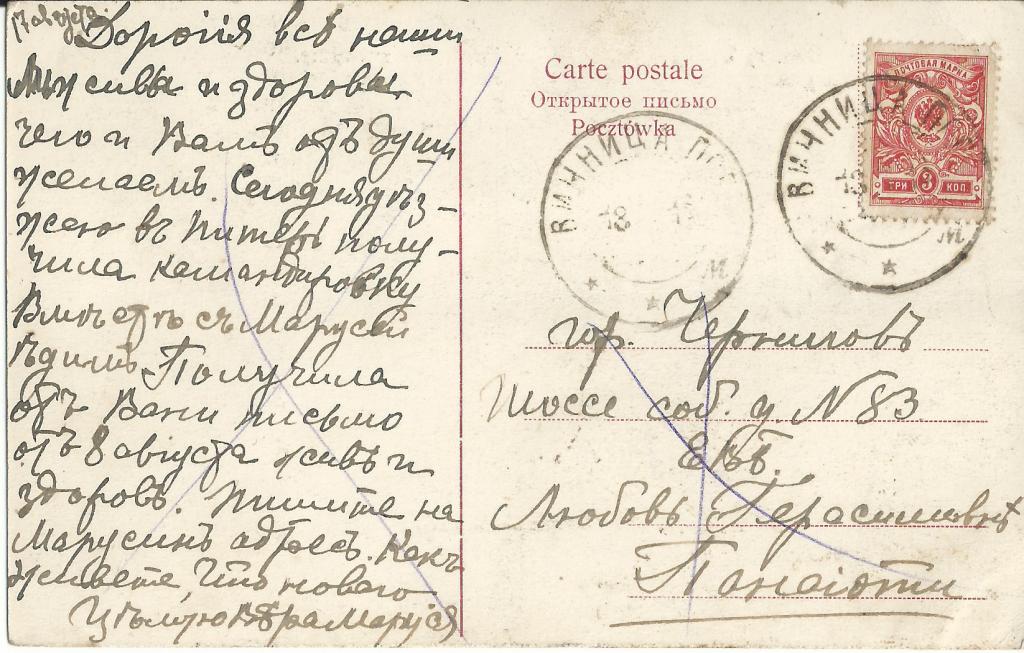 17 августа.
Дорогія всѣ наши
Мы живы и здоровы
чего и Вамъ отъ души
желаемъ. Сегодня ѣз-
жею въ Питеръ полу-
чила командировку
Вмѣстѣ съ Марусей
ѣдимъ Получила
отъ Вани письмо
отъ 8 августа живъ и
здоровъ. Пишите на
Марусинъ адресъ. Какъ
живете, что новаго
Цѣлую Вѣра Маруся
Carte postale
Открытое письмо
Pocztówka
ПОЧТОВАЯ МАРКА
ТРИ 3 КОП
ВИННИЦА ПОД
18
ВИННИЦА
18
гор. Черниговъ
Шоссе соб. д N 83
ЕВБ.
Любовь Герасимовнѣ
Панаіоти